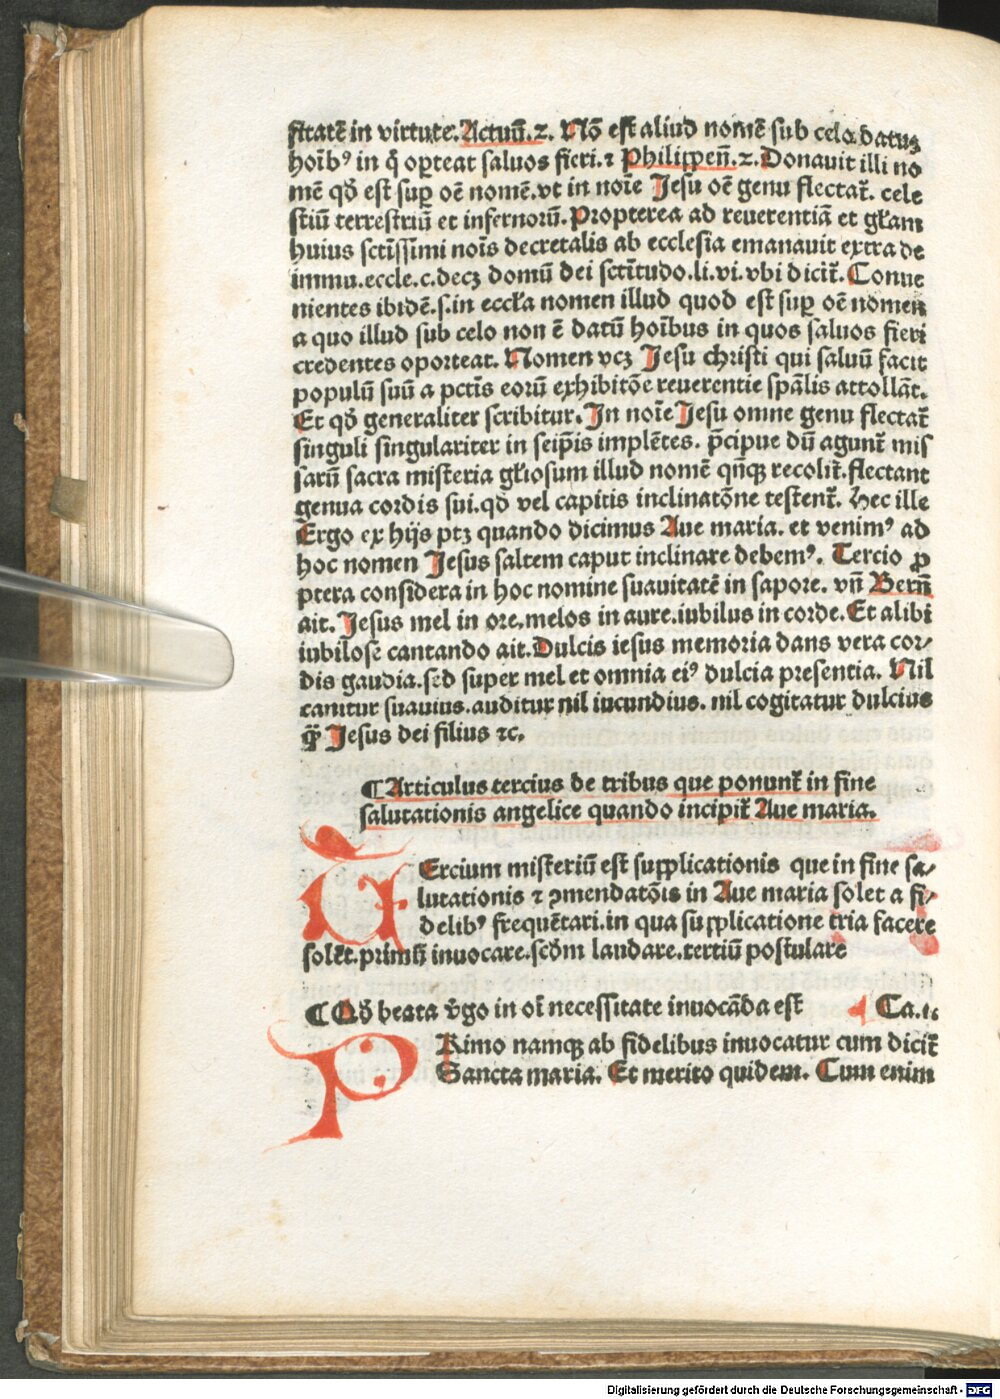 ſtatē in virtute. Actuū. 2. Nō eſt aliud nomē ſub celo datuꝫ
hoīb⁹ in q̊ oꝑteat ſaluos fieri. ⁊ Philippeñ. 2. Donauit illi no
mē qď eſt ſuꝑ oē nomē. vt in noīe Jeſu oē genu flectat̄. cele
ſtiū terreſtriū et infernorū. Propterea ad reuerentiā et gl̄am
huius ſctīſſimi noīs decretalis ab eccleſia emanauit extra de
immu. eccle. c. decꝫ domū dei ſctītudo. li. vi. vbi dicit̄. Conue
nientes ibidē. ſ. in eccl̄a nomen illud quod eſt ſuꝑ oē nomen
a quo illud ſub celo non ē datū hoībus in quos ſaluos fieri
credentes oporteat. Nomen vcꝫ Jeſu chriſti qui ſaluū facit
populū ſuū a pctīs eorū exhibitōe reuerentie ſpālis attollāt.
Et qď generaliter ſcribitur. In noīe Jeſu omne genu flectat̄
ſinguli ſingulariter in ſeip̄is implētes. p̄cipue dū agunt̄ miſ
ſarū ſacra miſteria gl̄ioſum illud nomē qn̄qꝫ recolit̄. flectant
genua cordis ſui. qď vel capitis inclinatōne teſtent̄. Hec ille
Ergo ex hijs ptꝫ quando dicimus Aue maria. et venim⁹ ad
hoc nomen Jeſus ſaltem caput inclinare debem⁹. Tercio ꝓ
ptera conſidera in hoc nomine ſuauitatē in ſapore. vn̄ Bern̄
ait. Jeſus mel in ore. melos in aure. iubilus in corde. Et alibi
iubiloſe cantando ait. Dulcis ieſus memoria dans vera cor⸗
dis gaudia. ſed ſuper mel et omnia ei⁹ dulcia preſentia. Nil
canitur ſuauius. auditur nil iucundius. nil cogitatur dulcius
ꝙ̄ Jeſus dei filius ⁊c.
¶ Articulus tercius de tribus que ponunt̄ in fine
ſalutationis angelice quando incipit̄ Aue maria.
TErcium miſteriū eſt ſupplicationis que in fine ſa⸗
lutationis ⁊ ꝯmendatōis in Aue maria ſolet a fi⸗
delib⁹ frequētari. in qua ſupplicatione tria facere
ſolēt. primū inuocare. ſcďm laudare. tertiū poſtulare
¶ Qď beata v̄go in oī neceſſitate inuocāda eſt Ca. i.
PRimo namqꝫ ab fidelibus inuocatur cum dicit̄
Sancta maria. Et merito quidem. Cum enim
Digitalisierung gefördert durch die Deutsche Forschungsgemeinschaft - DFG